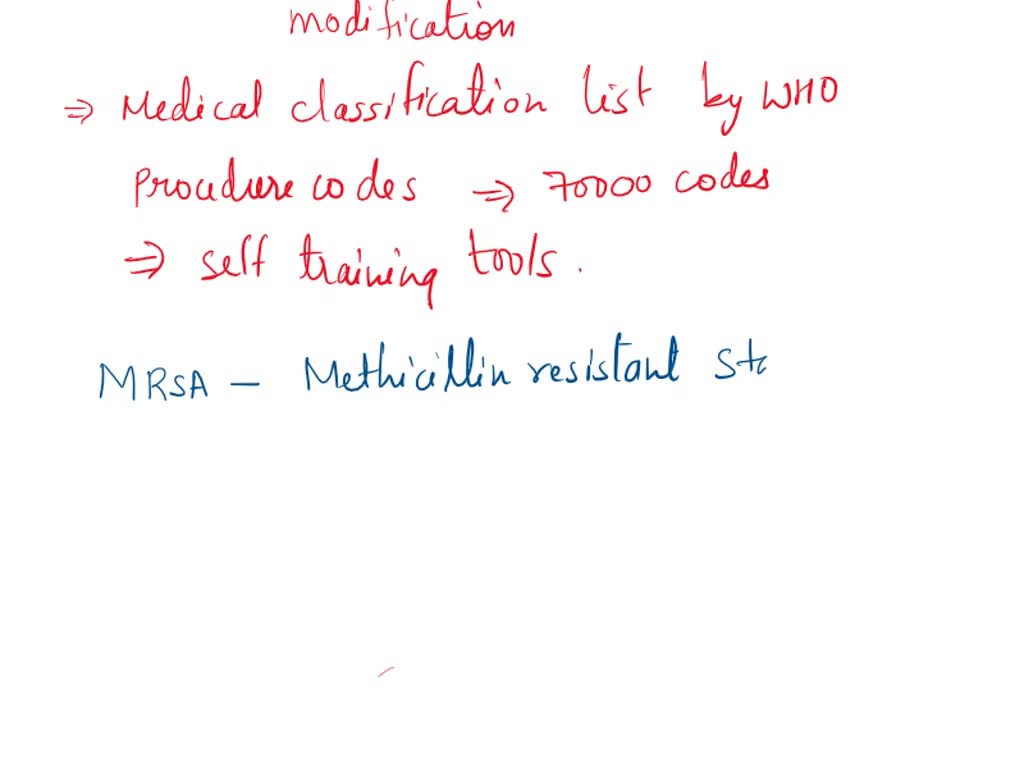 modification
⇒ Medical classification list by WHO
procedure codes ⇒ 70000 codes
⇒ self training tools.
MRSA - Methicillin resistant Sta